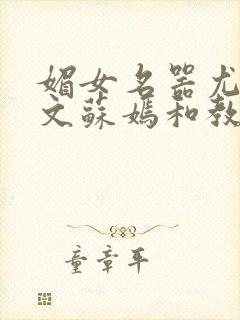 媚女名器尤
文蘇媽和教
童章平